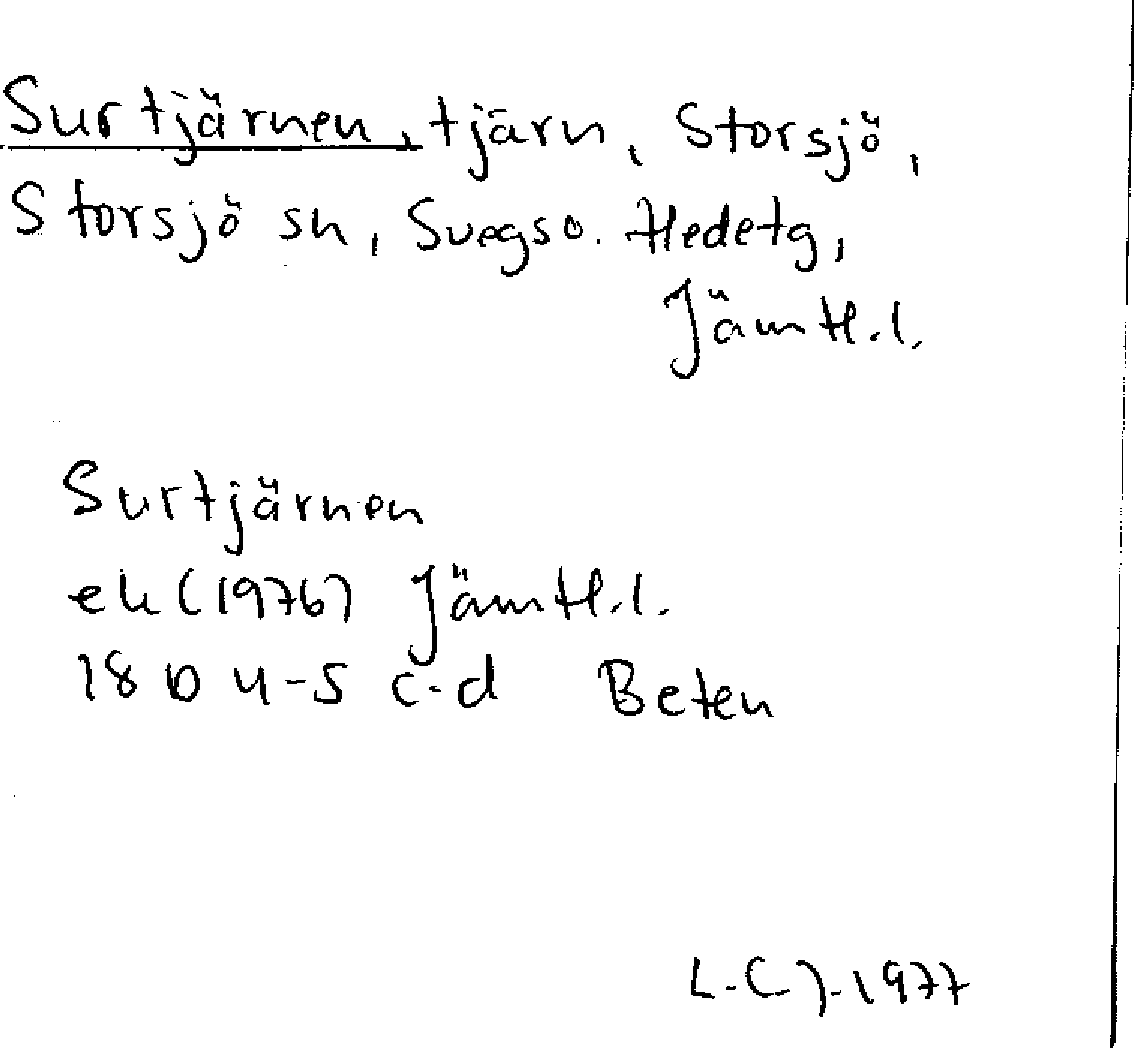 Surtjärnen, tjärn, Storsjö,
Storsjö sn, Svegs o. Hedetg,
Jämtl.l.
Surtjärnen
ek (1976) Jämtl.l.
18 D 4-5 c-d Beten
L-CJ-1977